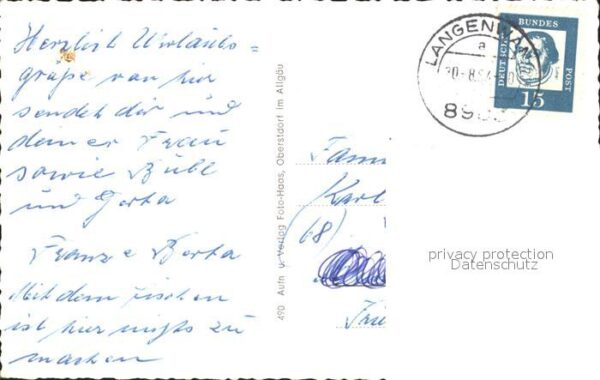 Herzlich Urlaubs=
grüße von hir
sendet dir und
deiner Frau
sowie Bübl
und Gerta
Franz e Berta
Mit dem fischen
ist hier nichts zu
machen
490 Aufn u. Verlag Foto-Haas, Oberstdorf im Allgäu
Fami
Karl
(68)
LANGENWANG
a
8983
DEUTSCHE BUNDES POST
15
privacy protection
Datenschutz